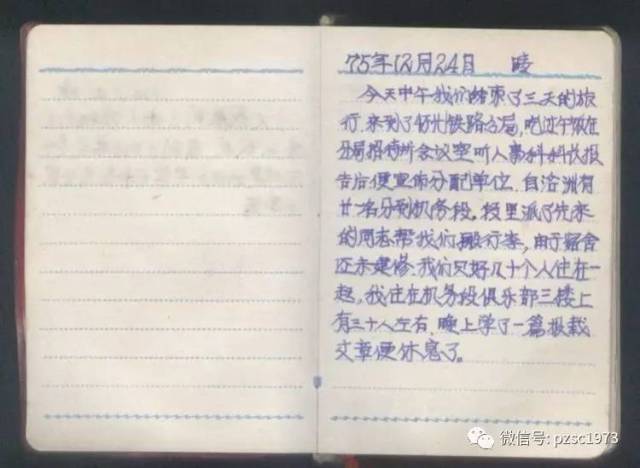 75年12月24日 晴
今天中午我们结束了三天的旅
行.来到了忻州铁路分局,吃过午饭在
分局招待所会议室听人事科科长报
告后便宣布分配单位.自洛洲有
廿名分到机务段,段里派了先来
的同志帮我们搬行李,由于宿舍
还未建修.我们只好几十个人住在一
起,我住在机务段俱乐部三楼上
有三十人左右.晚上学了一篇报载
文章便休息了。
微信号: pzsc1973